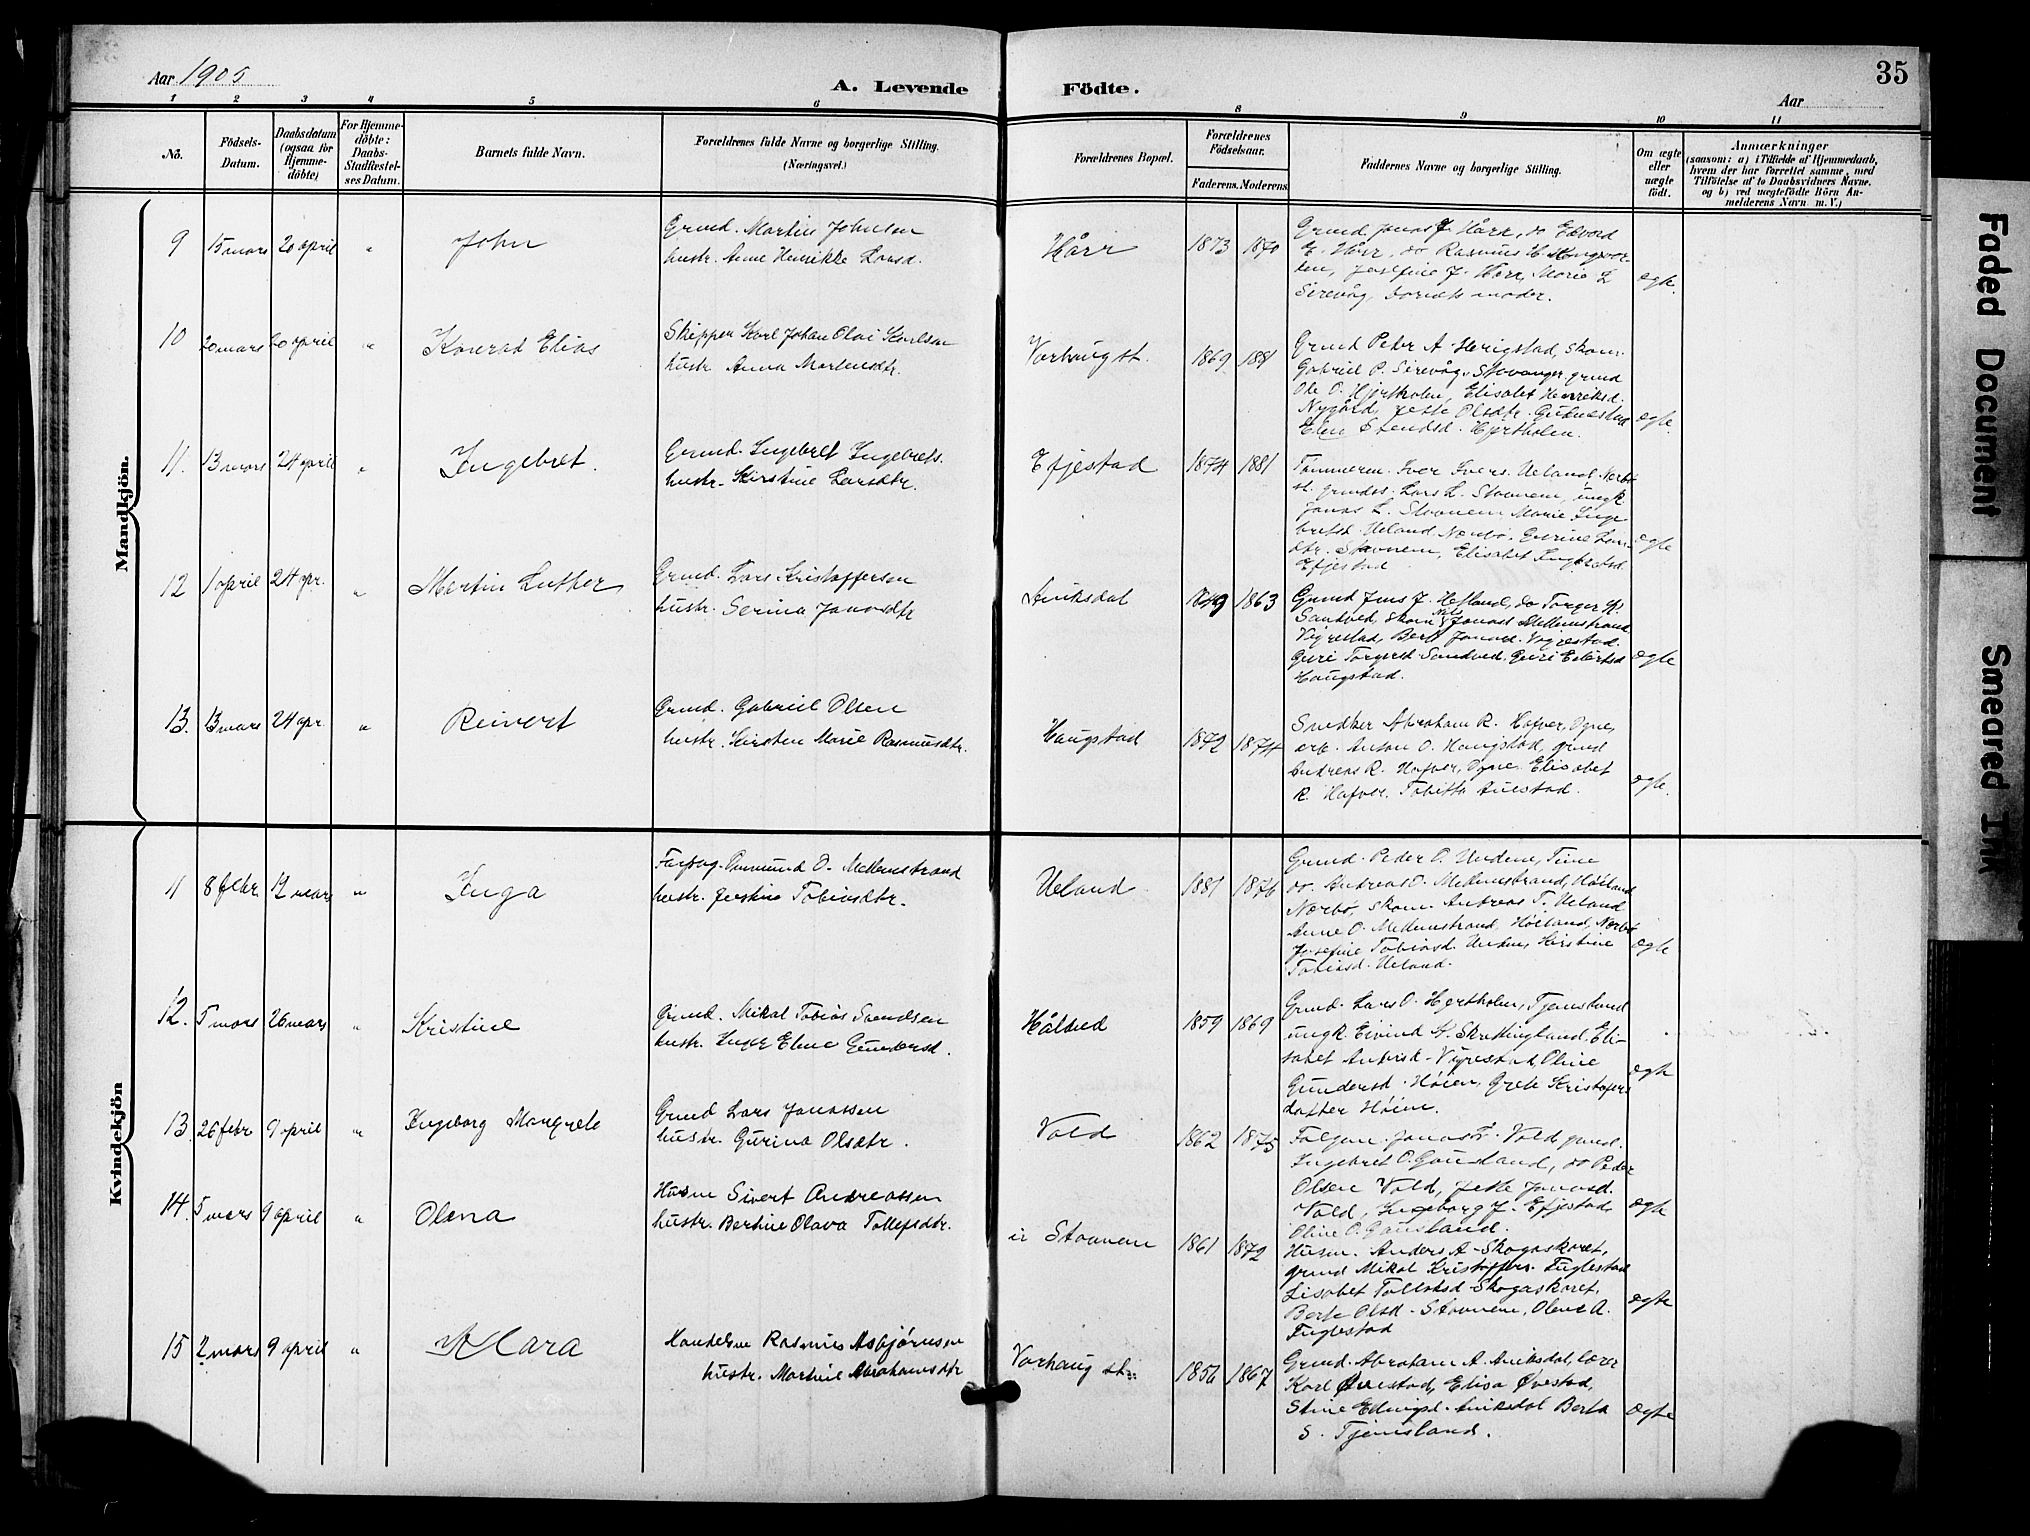 Aar 1905
A. Levende Födte.
35
Aar
1 2 3 4 5 6 8 9 10 11
No.
Födsels-Datum.
Daabsdatum (ogsaa for Hjemme-döbte)
For Hjemme-döbte: Daabs-Stadfæstel-ses Datum.
Barnets fulde Navn.
Forældrenes fulde Navne og borgerlige Stilling. (Næringsvei.)
Forældrenes Bopæl.
Forældrenes Födselsaar.
Faderens. Moderens
Faddernes Navne og borgerlige Stilling.
Om ægte eller uægte födt.
Anmærkninger
(saasom: a) i Tilfælde af Hjemmedaab,
hvem der har forrettet samme, med
Tilföielse af to Daabsvidners Navne.
og b) ved uægtefödte Börn An-
melderens Navn m. V.)
Mandkjön.
9 15 mars 20 april " John
Grmd. Martin Johnsen
hustr. Anne Henrikke Larsd.
Hårr 1873 1870
Grmd. Jonas J. Hårr, do Edvard
E. Hårr, do Rasmus H. Kongsvor-
ten, Josefine J. Hårr, Marie L
Sirevåg, barnets moder.
ægte.
10 20 mars 20 april " Konrad Elias
Skipper Karl Johan Olai Karlsen
hustr. Anna Martensdtr.
Varhaug st. 1869 1881
Grmd Peder A. Herigstad, skom.
Gabriel P. Sirevåg, Stavanger, grmd
Ole O. Hjertholm, Elisabet Henriksd.
Nygård, Jette Olsdtr. Grødnestad
Eline Svendsd. Hjertholm.
ægte.
11. 13 mars 24 april " Ingebret.
Grmd. Ingebret Ingebrets.
hustr. Kirstine Larsdtr.
Efjestad 1874 1881
Tømmerm. Iver Ivers. Ueland. Nærbø
st. grmdss. Lars L. Stavnem, ungk
Jonas L. Stavnem Marie Inge
bretsd. Ueland Nærbø, Everine Lars-
dtr. Stavnem, Elisabet Ingbretsd.
Efjestad
ægte
12 1 april 24 apr. " Martin Luther
Grmd. Lars Kristoffersen
hustr. Serina Jonasdtr
Aniksdal 1849 1863
Grmd Jens J. Hefland, do Torger K.
Sandved, skom Nils Jonass Mellemstrand
Vigrestad, Berte Jonasd. Vigrestad.
Guri Torgersd. Sandved. Guri Edvartsd
Haugstad.
ægte
13. 13 mars 24 apr. " Reinert
Grmd. Gabriel Olsen
hustr. Kirsten Marie Rasmusdtr.
Haugstad 1872 1874
Snedker Abraham R. Hafver, Ogne,
arb. Anton O. Haugstad, grmd
Andreas R. Hafver, Ogne. Elisabet
R. Hafver. Tobitta Auestad.
ægte.
Kvindekjön
11 8 febr. 12 mars " Inga
Forpag. Ommund O. Mellemstrand
hustr. Jerstine Tobiasdtr.
Ueland 1881 1876
Grmd. Peder O. Undem, Time
do. Andreas O. Mellemstrand, Høiland
Nærbø, skom. Andreas T. Ueland
Anne O. Mellemstrand, Høiland, Nærbø
Josefine Tobiasd. Undem, Kirstine
Tobiasd. Ueland.
ægte
12. 5 mars 26 mars " Kristine
Grmd. Mikal Tobias Svendsen
hustr. Inger Eline Gundersd.
Hålud 1859 1869
Grmd. Lars O. Hjertholm, Tjemsland
ungk Eivind A. Skretinglund, Eli-
sabet Andrisd. Vigrestad, Oline
Gundersd. Høien, Grete Kristofers
datter Høien.
ægte
13 26 febr 9 april " Ingeborg Margrete
Grmd Lars Jonassen
hustr. Gurina Olsdtr.
Vold 1862 1875
Folgem. Jonas T. Vold, grmd.
Ingebret O. Gausland, do Peder
Olsen Vold, Jette Jonasd.
Vold, Ingeborg J. Efjestad
Oline O. Gausland.
ægte
14. 5 mars 9 april " Olena
Husm Sivert Andreassen
hustr. Bertine Olava Tollefsdtr.
Stavnem 1861 1872
Husm. Anders A. Skogaskoret,
grmd Mikal Kristoffers. Fuglestad
Lisabet Tollefsd Skogaskoret,
Berte Olsd. Stavnem, Olene A.
Fuglestad
ægte
15 2 mars 9 april " Klara
Handelsm Rasmus Asbjørnsen
hustr. Martine Abrahamsdtr
Varhaug st. 1856 1867
Grmd. Abraham A. Aniksdal, lærer
Karl Øvestad, Elisa Øvestad,
Stine Aniksdal Berta
S. Tjemsland.
ægte
Faded Document
Smeared Ink